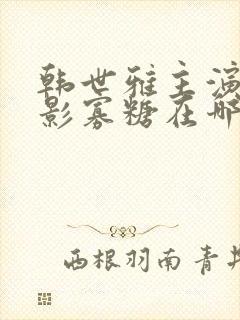 韩世雅主演
影寡糖在哪
西根羽南青